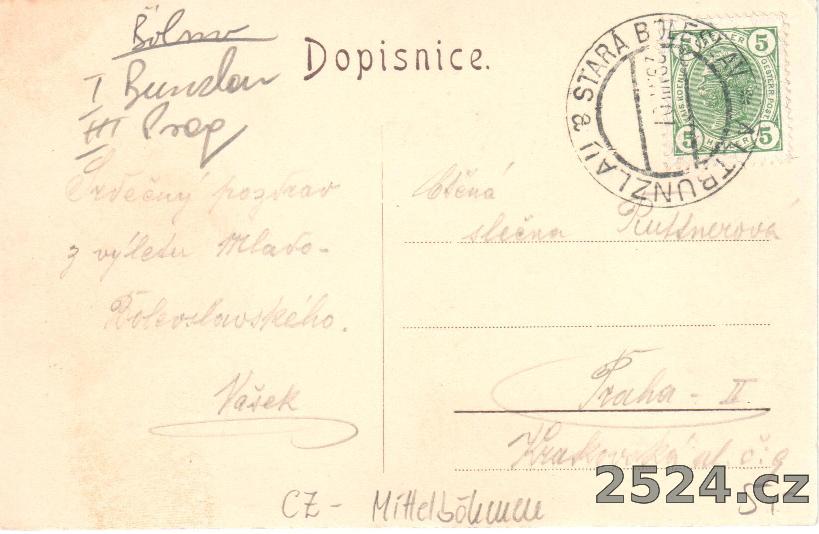 Böhm
Dopisnice.
I Bunzlau
III Prag
STARÁ BOLESLAV * ALTBUNZLAU &
5 5
5 HELLER 5
Srdečný pozdrav
z výletu Mlado-
Boleslavského.
Vašek
Ctěná
slečna Ruttnerová
Praha - II
Krakovská ul. č. 9
CZ - Mittelböhmen
2524.cz